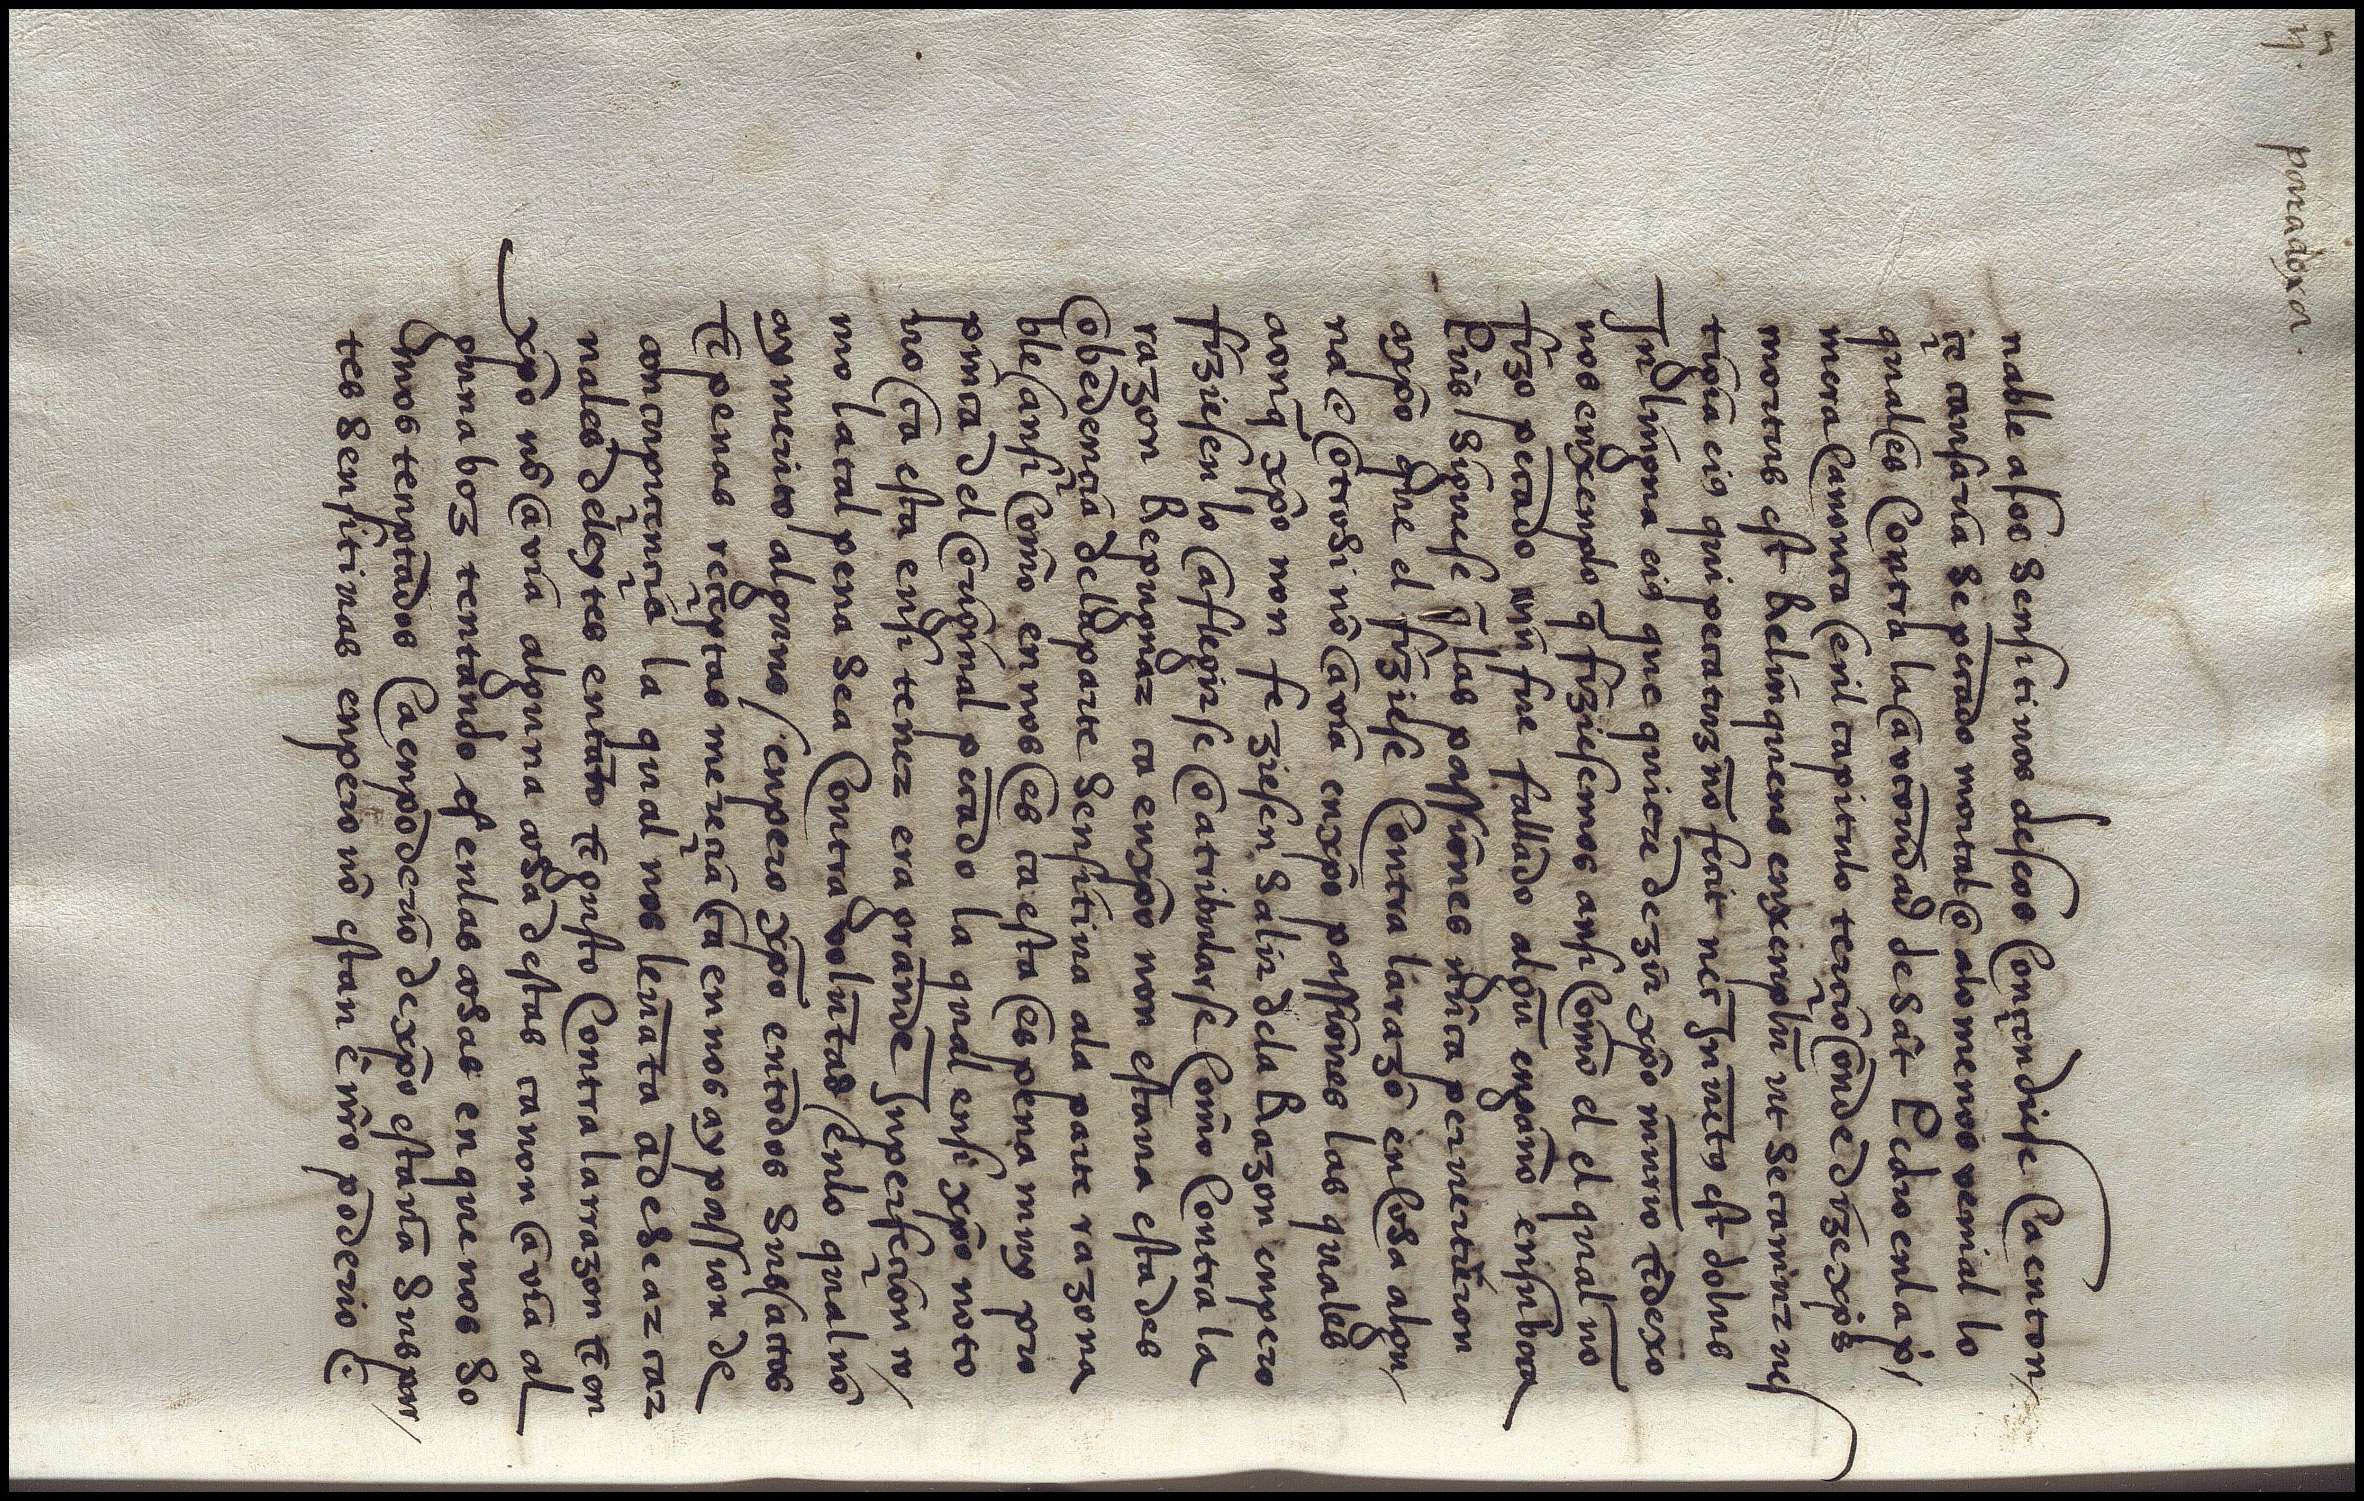 ij. paradoxa.
nable a sos sensitivos deseos conçendise ca enton/
çe cansaria se pecado mortal o a lo menos venial lo
qual es contra la actoridad de sãt Pedro en la p̃/
mera canonica en il capitulo terçio onde dize xp̃s
mortus est relinquens enxenplũ ut secamini nes
tigia eiꝯ qui pecatuz nõ fecit nec Inuẽtꝯ est dolus
In lingua eiꝯ que quiere dezir xp̃o murio τ dexo
nos enxenplo q̃ fiziesemos ansi como el el qual no
fizo pecado nin fue fallado algũ engaño en su boca
Pues siguese q̃ las passiones nũca pervertieron
a xp̃o que el fiziese contra la razõ en cosa algu/
na e otrosi nõ avia en xp̃o passiones las quales
aonq̃ xp̃o non feziesen salir dela Razon enpero
fiziesen lo aflegirse o atribularse como contra la
razon Repugnar ca en xp̃o non estava esta des
obedencia dela parte sensitiva ala parte razona
ble ansi como en nos es ca esta es pena muy pro
pinca del original pecado la qual ensi xp̃o no to
mo ca esta ensi tener era grande Inperfecion ro/
mo la tal pena sea contra voluntad en lo qual nõ
ay merito alguno / enpero xp̃o en todos sus attos
τ penas reçeptas mereçia ca en nos ay passion de
concupiçençia la qual nos levãta a desear car
nales deleytes en tãto τ gusto contra la razon τ on
xp̃o nõ avia alguna cosa destas ca non avia al
guna boz tentando en las cosas en que nos so
mos tentados ca en poderio de xp̃o estavã sus par/
tes sensitivas enpero nõ estan ẽ nr̃o poderio E